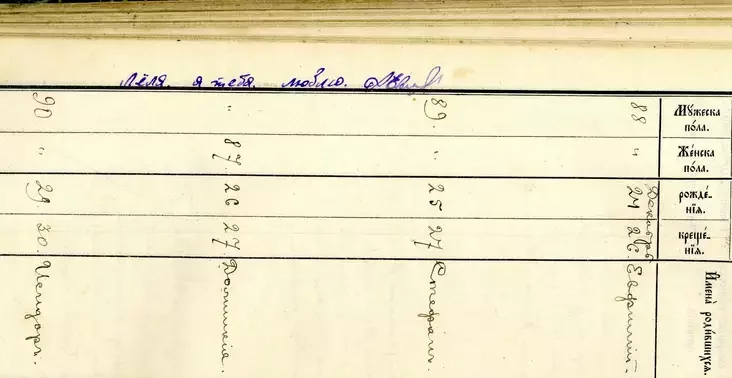 Лёля. я тебя. люблю.
Мꙋ́жеска
по́ла.
Же́нска
по́ла.
рожде́-
нїѧ.
креще́-
нїѧ.
Имена̀ роди́вшихсѧ.
Декабрь
88 " 24 26. Евфимій.
89. " 25 27 Стефанъ.
" 87. 26 27 Домникія.
90 " 29 30. Исидоръ.